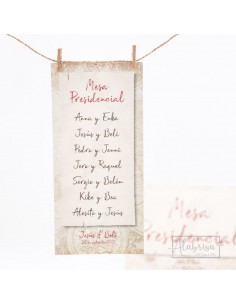 Mesa
Presidencial
Anna y Enka
Jesús y Beli
Pedro y Jenni
Jero y Raquel
Sergio y Belén
Kike y Bea
Alosito y Jesús
Jesús & Beli
Mesa
Presidencial